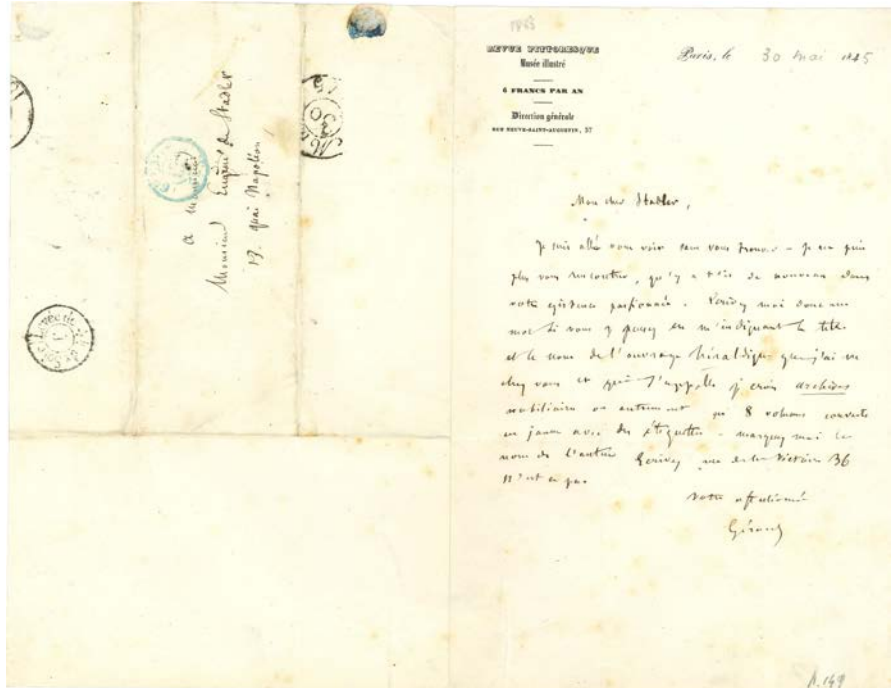 A Monsieur
Monsieur Eugène de Stadler
19. quai Napoléon
1845
REVUE PITTORESQUE
Musée illustré
6 FRANCS PAR AN
Direction générale
RUE NEUVE-SAINT-AUGUSTIN, 37
Paris, le 30 mai 1845
Mon cher Stadler,
Je suis allé vous voir sans vous trouver – Je ne puis
plus vous rencontrer, qu'y a t'il de nouveau dans
votre existence passionnée. Ecrivez moi donc un
mot si vous y pensez en m'indiquant le titre
et le nom de l'ouvrage héraldique que j'ai vu
chez vous et qui s'appelle je crois archives
nobiliaires ou autrement en 8 volumes couverts
en jaune avec des étiquettes – marquez moi le
nom de l'auteur Ecrivez rue de la Victoire 36
n'est ce pas
votre affectionné
Gérard